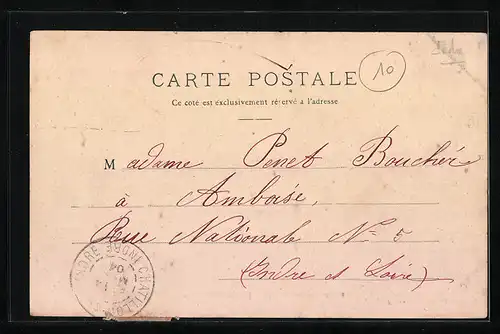 CARTE POSTALE
10
Ce côté est exclusivement réservé à l'adresse
Madame Penet Boucher
à
Amboise,
Rue Nationale Nº 5
(Indre et Loire)
CHATILLON INDRE
04